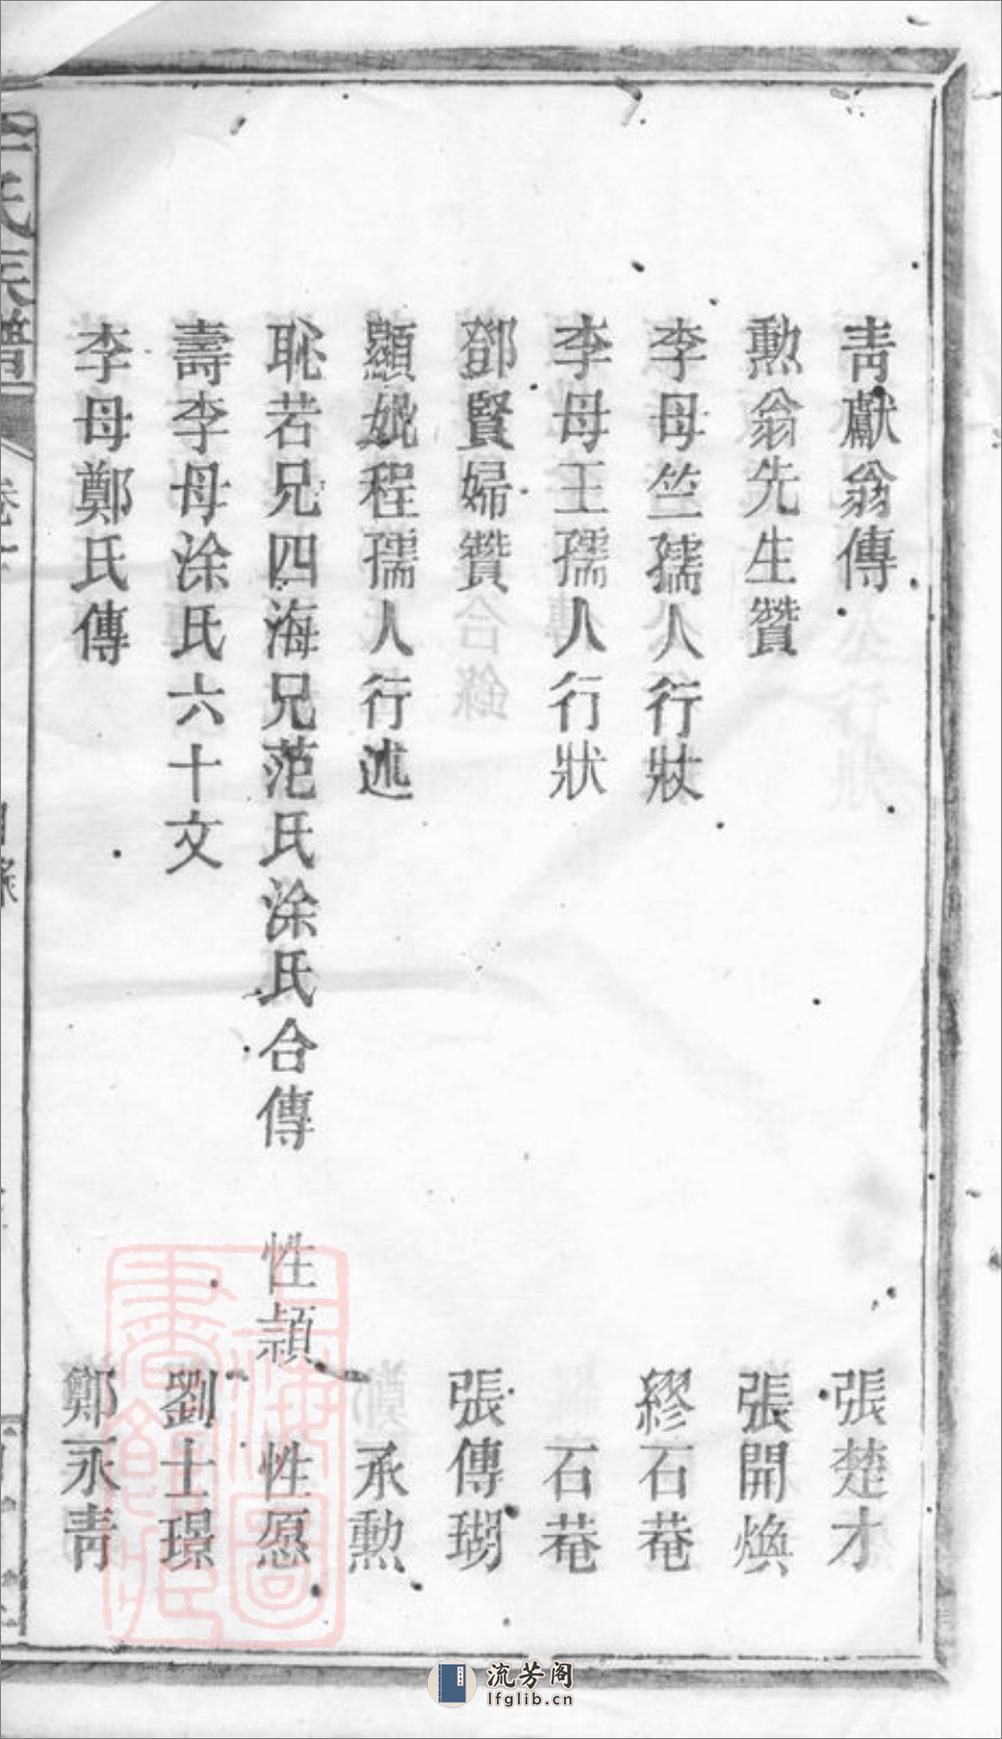 青獻翁傳 張楚才
勲翁先生贊 張開煥
李母竺孺人行狀 繆石菴
李母王孺人行狀 石菴
鄧賢婦贊 張傳瑚
顯妣程孺人行述 承勲
恥若兄四海兄范氏涂氏合傳 性頴 性愿
壽李母涂氏六十文 劉士璟
李母鄭氏傳 鄭永青
氏族譜
流芳阁
lfglib.cn